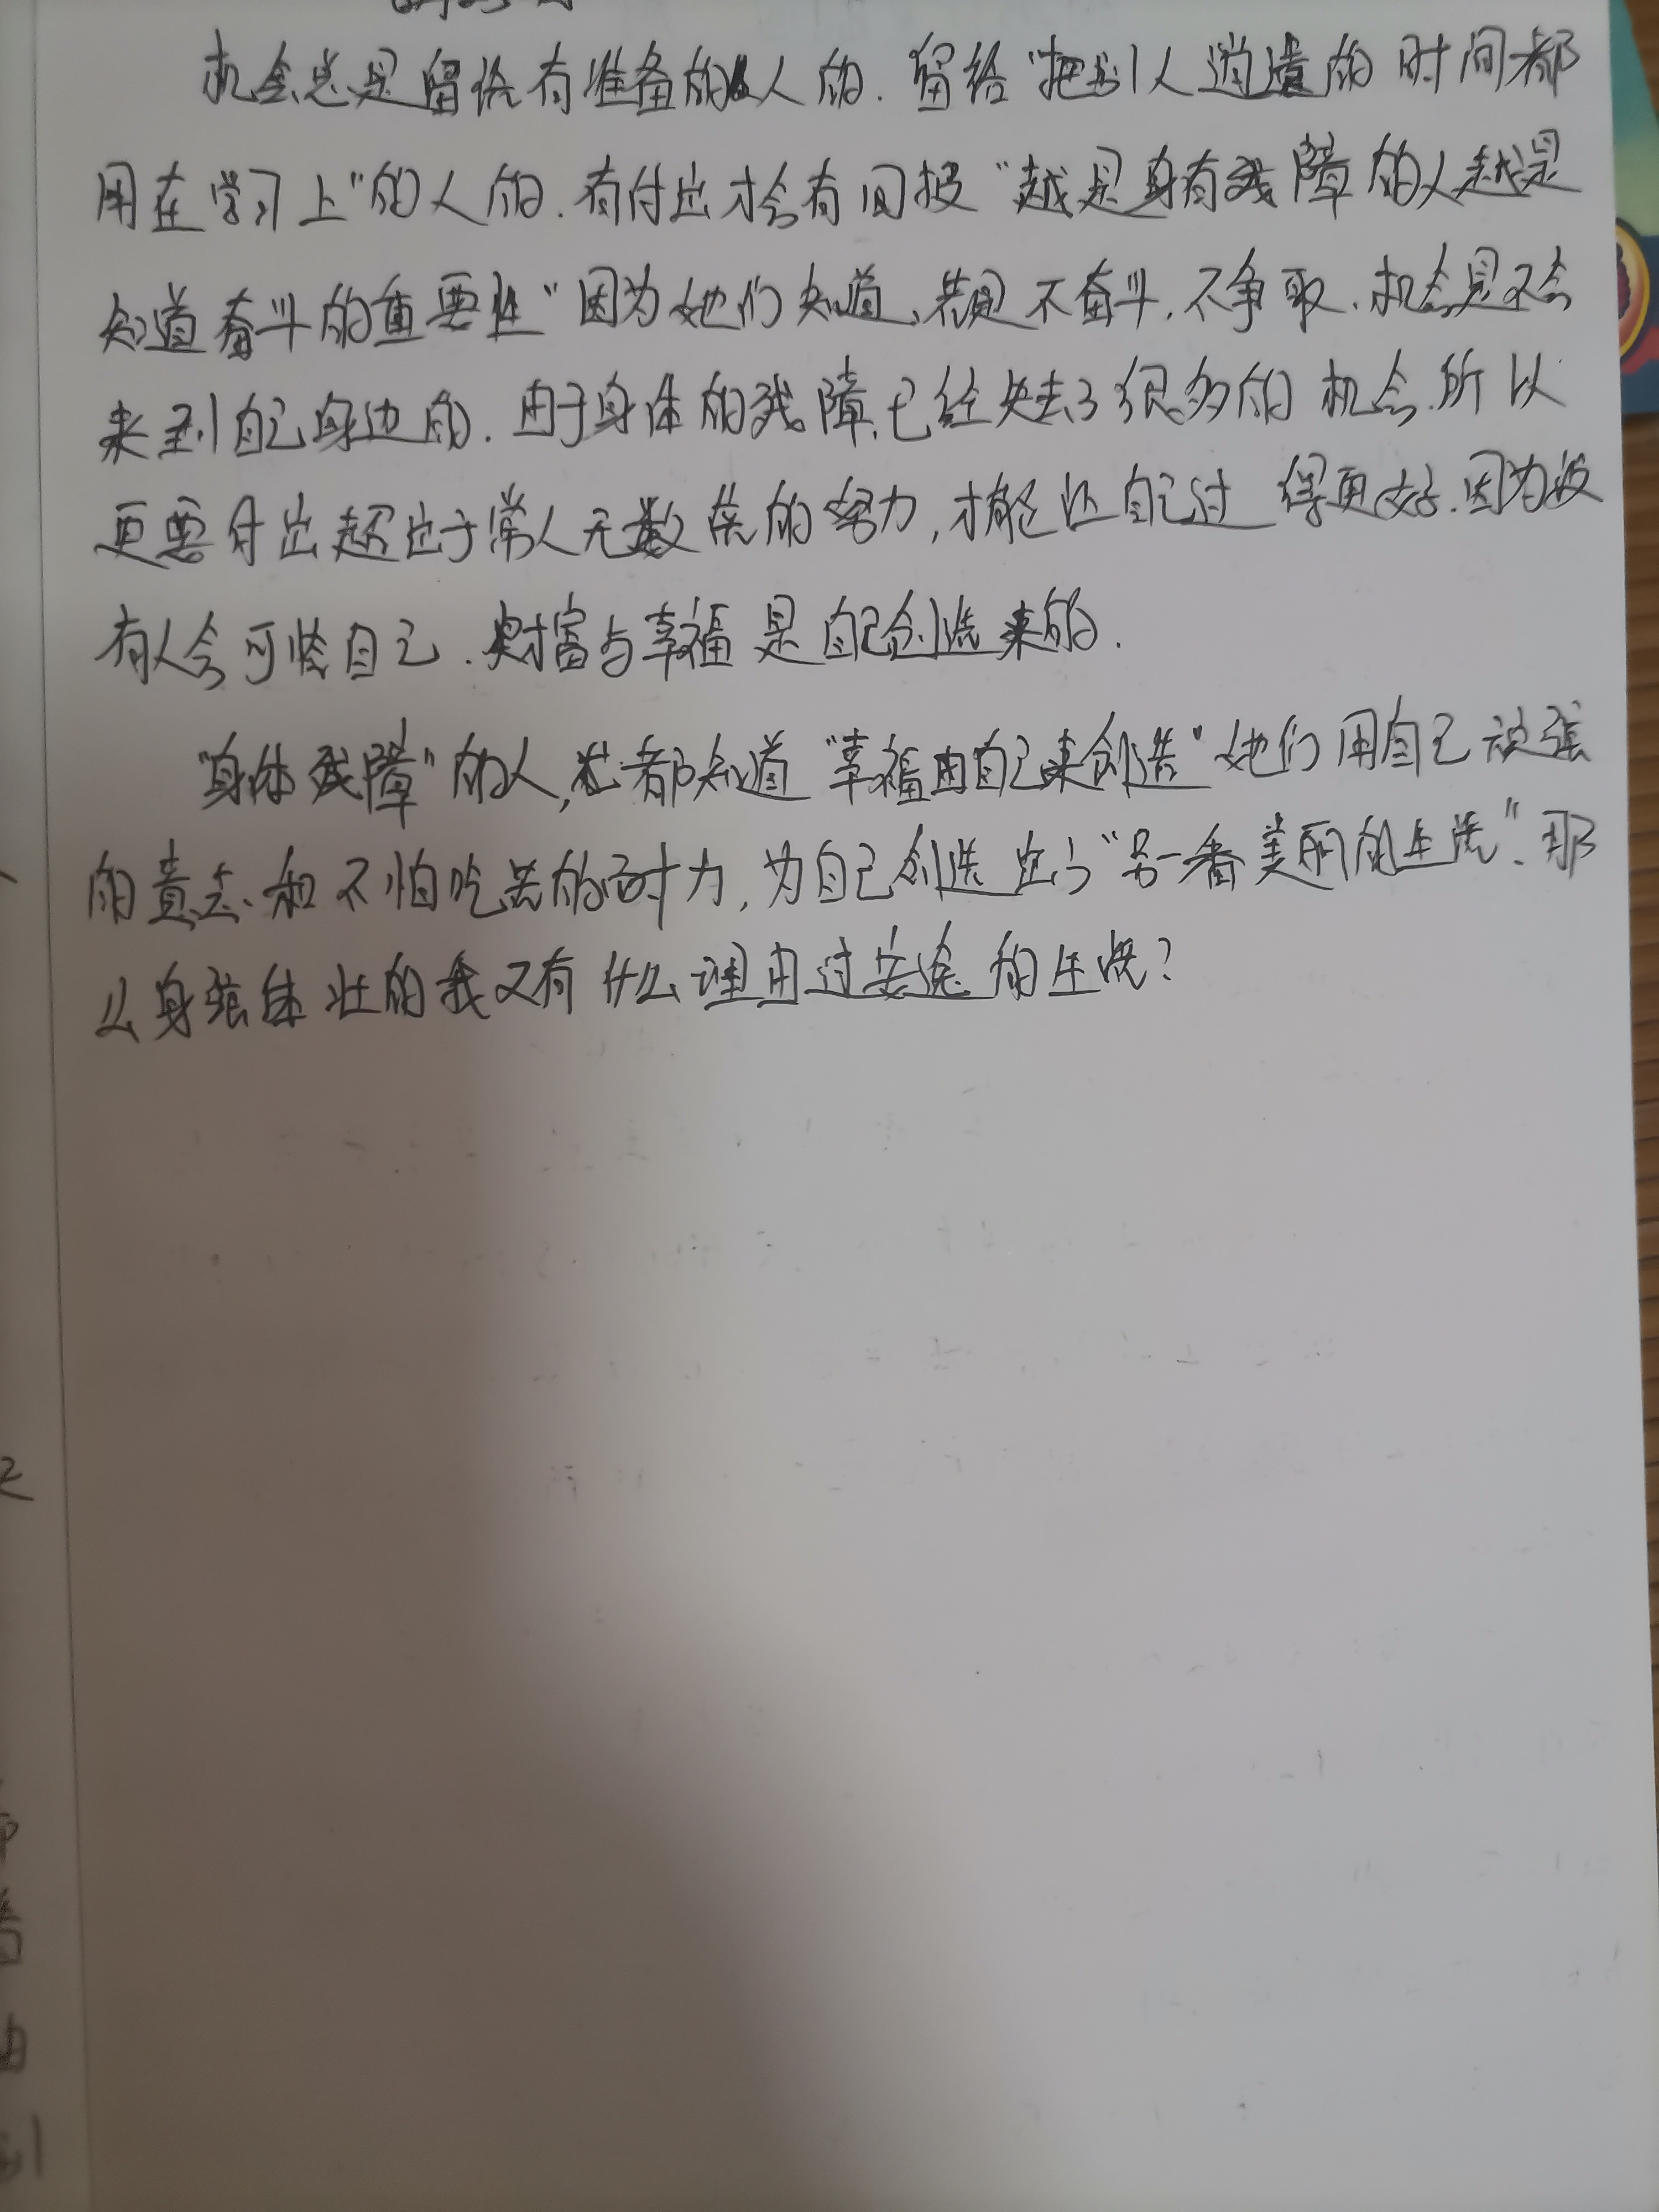 机会总是留给有准备的人的.留给"把别人消遣的时间都
用在学习上"的人的.有付出才会有回报"越是身有残障的人越是
知道奋斗的重要性"因为她们知道,若是不奋斗.不争取.机会是不会
来到自己身边的.由于身体的残障.已经失去了很多的机会.所以
更要付出超出于常人无数倍的努力,才能让自己过得更好.因为没
有人会可怜自己.财富与幸福是自己创造来的.
"身体残障"的人,都知道"幸福由自己来创造"她们用自己顽强
的意志.和不怕吃苦的耐力,为自己创造出了"另一番美丽的生活".那
么身强体壮的我又有什么理由过安逸的生活?